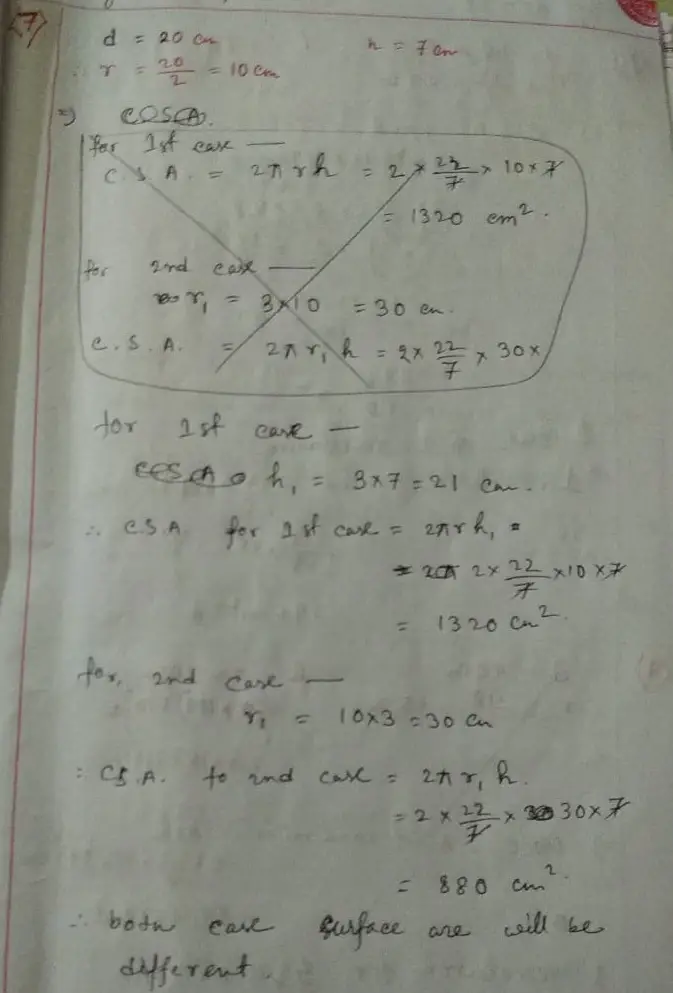 7
d = 20 cm h = 7 cm
∴ r = 20/2 = 10 cm
⇒ COSA.
for 1st case —
C.S.A. = 2πrh = 2 × 22/7 × 10 × 7
= 1320 cm².
for 2nd case —
r₁ = 3×10 = 30 cm.
C.S.A. = 2πr₁h = 2 × 22/7 × 30 ×
for 1st case —
h₁ = 3×7 = 21 cm.
∴ C.S.A for 1st case = 2πrh₁ =
= 2 × 22/7 × 10 × 7
= 1320 cm².
for, 2nd case —
r₁ = 10×3 = 30 cm
∴ CS.A. to 2nd case = 2πr₁h.
= 2 × 22/7 × 30 × 7
= 880 cm².
∴ both case surface are will be
different.